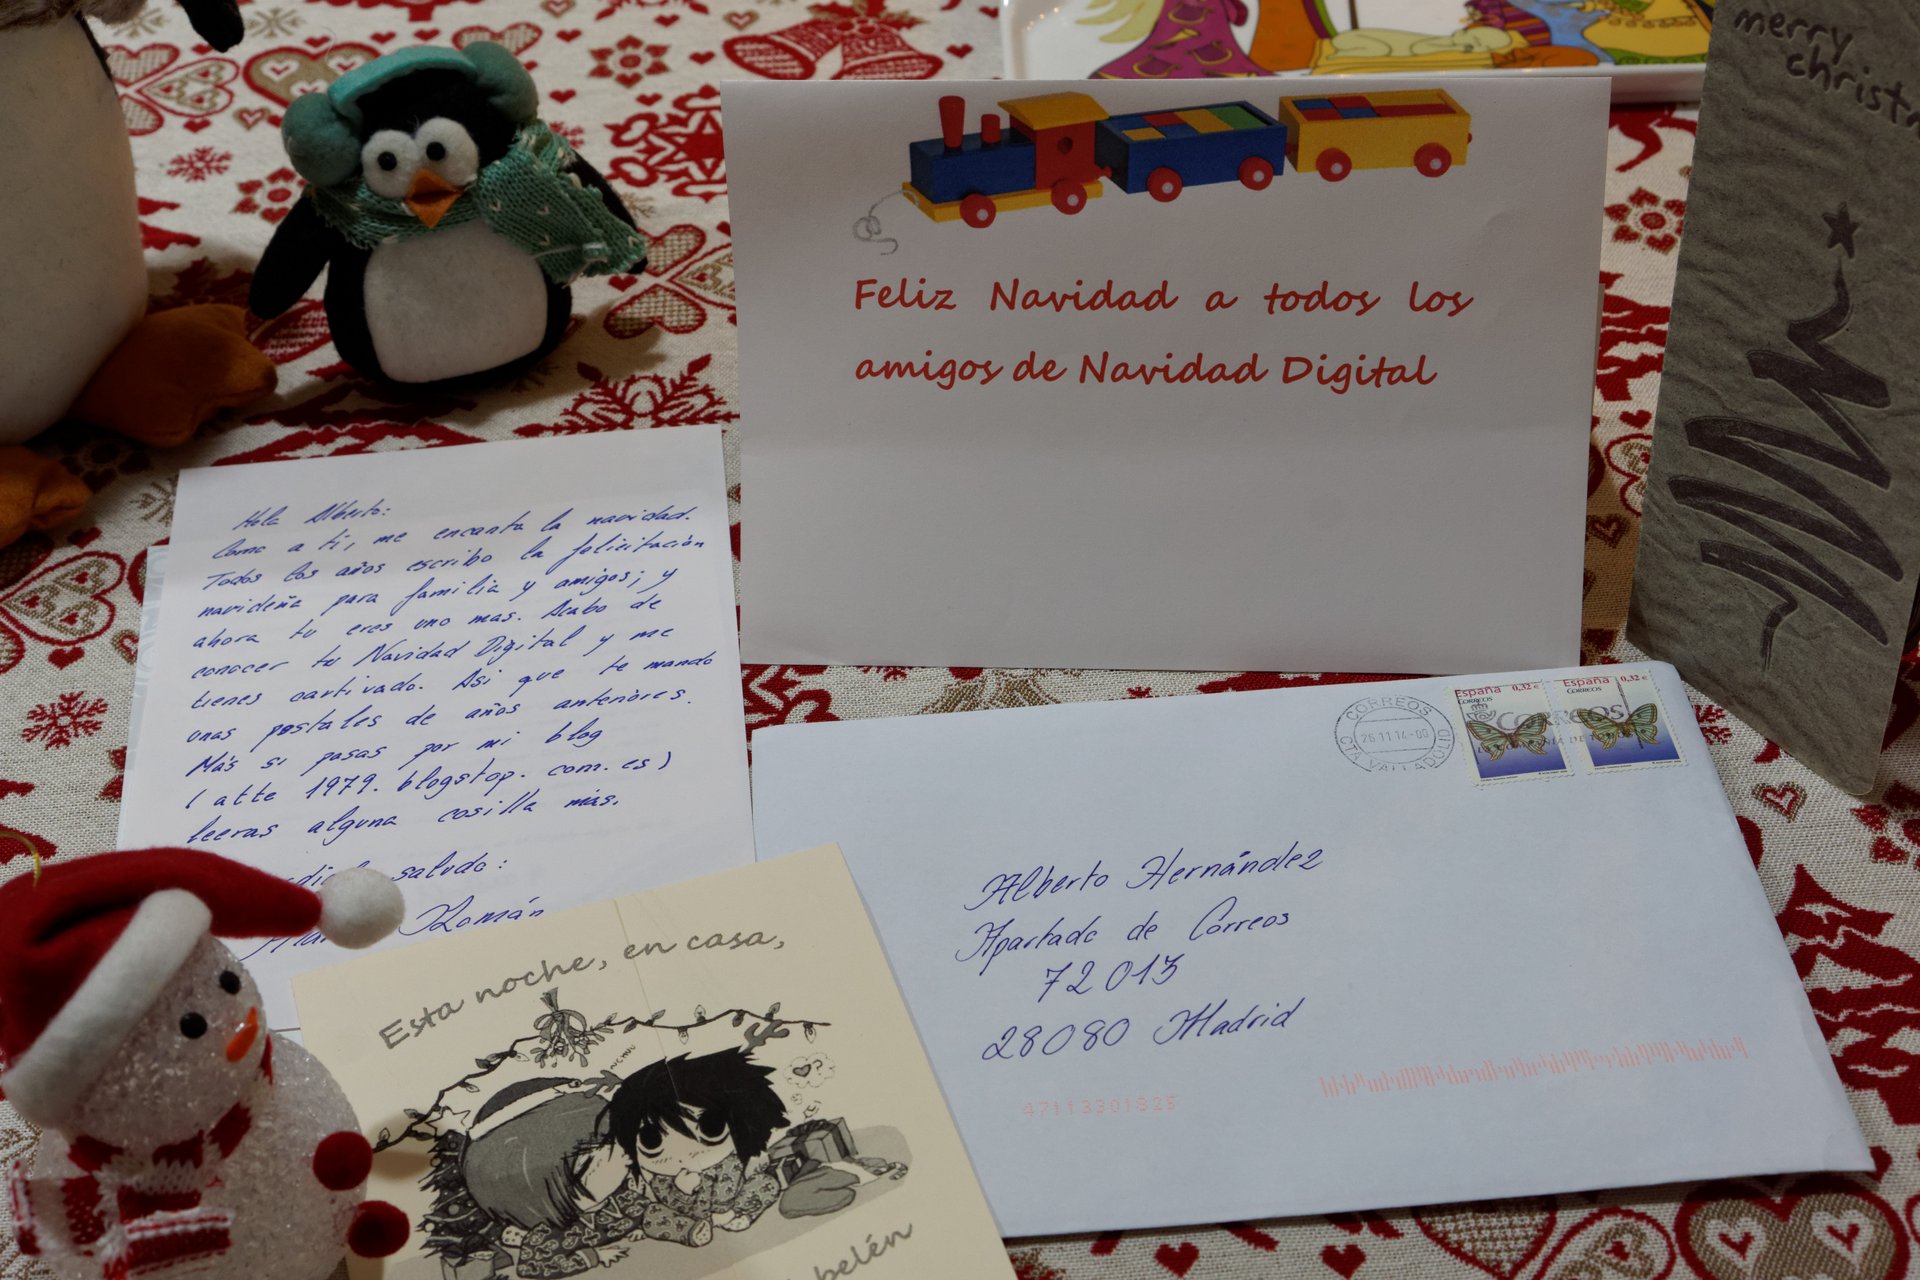 merry
christm
Feliz Navidad a todos los
amigos de Navidad Digital
Hola Alberto:
Como a ti, me encanta la navidad.
Todos los años escribo la felicitación
navideña para familia y amigos; y
ahora tu eres uno mas. Acabo de
conocer tu Navidad Digital y me
tienes cautivado. Asi que te mando
unas postales de años anteriores.
Más si pasas por mi blog
(atte 1979. blogstop. com. es)
leeras alguna cosilla más.
saludo:
Román
España 0,32€
CORREOS
España 0,32€
CORREOS
CORREOS
CORREOS
26 11 14-00
CTA VALLADOLID
Alberto Hernández
Apartado de Correos
72013
28080 Madrid
47113301325
Esta noche, en casa,
belén